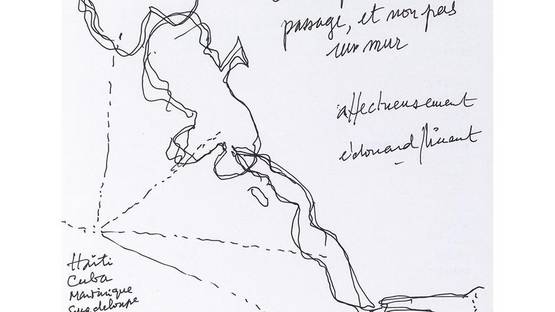 passage, et non pas
un mur
affectueusement
édouard glissant
Haïti
Cuba
Martinique
Guadeloupe